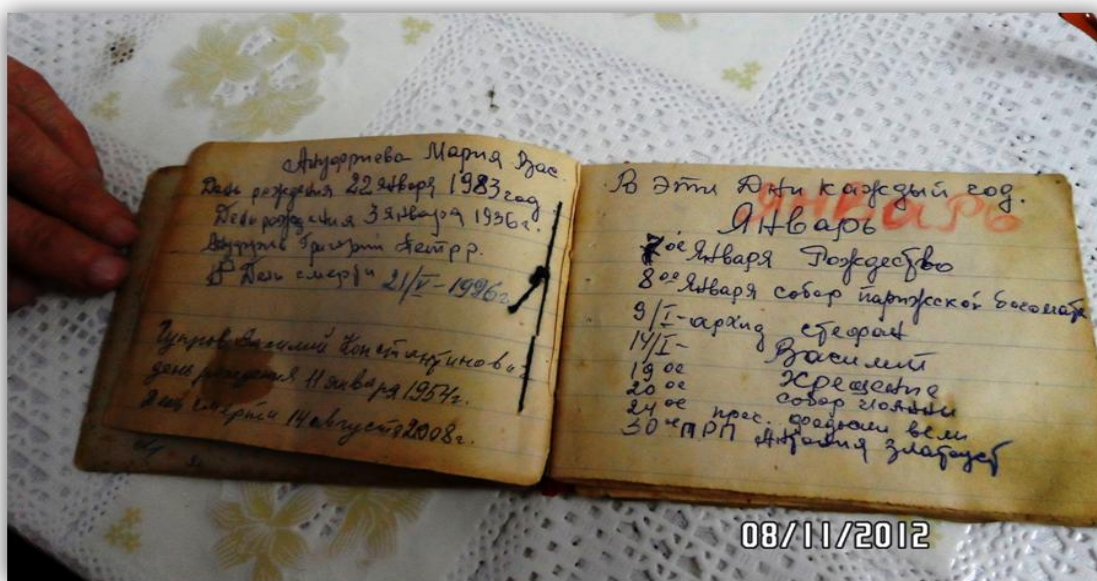 Ануфриева Мария Вас.
День рождения 22 января 1983 год
День рождения 3 января 1936 г.
Григорий Петрр.
День смерти 21/V-1996 г.
Чупров Василий Константинович
день рождения 11 января 1954 г.
день смерти 14 августа 2008 г.
В эти дни каждый год.
ЯНВАРЬ
Январь
7ое Января Рождество
8ое Января собор парижской
9/I-архид стефан
14/I- Василий
19ое Хрещение
20ое собор
24ое
30ое ПРП Антония златоуст
08/11/2012